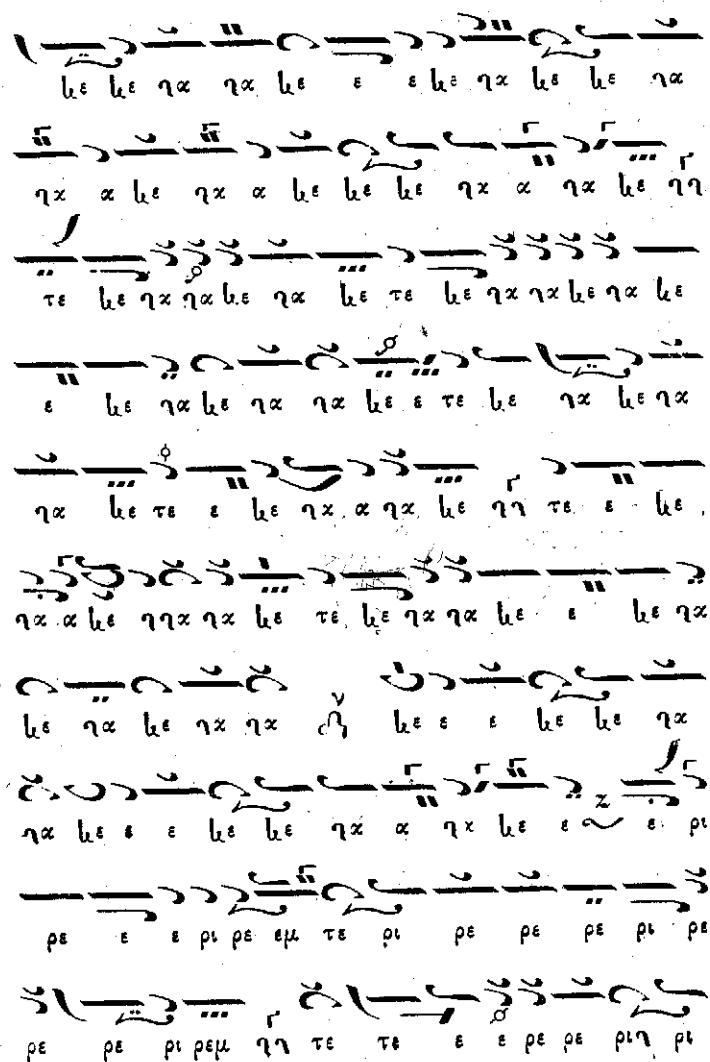 κε κε ηα ηα κε ε ε κε ηα κε κε ηα
ηα α κε ηα α κε κε κε ηα α ηα κε ηη
τε κε ηα ηα κε ηα κε τε κε ηα ηα κε ηα κε
ε κε ηα κε ηα ηα κε ε τε κε ηα κε ηα
ηα κε τε ε κε ηα α ηα κε ηη τε ε κε
ηα α κε ηηα ηα κε τε κε ηα ηα κε ε κε ηα
κε ηα κε ηα ηα κε ε ε κε κε ηα
ηα κε ε ε κε κε ηα α ηα κε ε ε ρι
ρε ε ε ρι ρε εμ τε ρι ρε ρε ρε ρι ρε
ρε ρε ρι ρεμ ηη τε τε ε ε ρε ρε ριη ρι